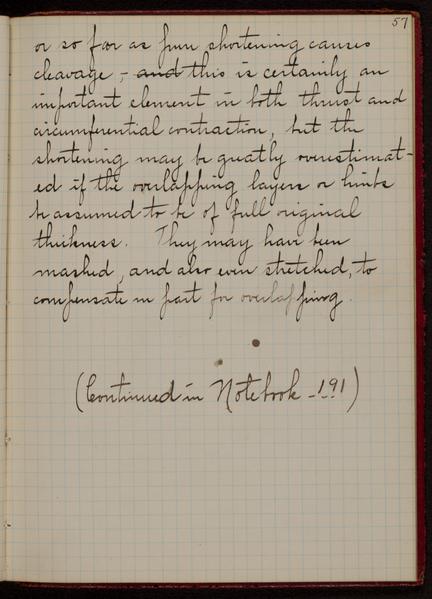 57
or so far as pure shortening causes
cleavage, - and this is certainly an
important element in both thrust and
circumferential contraction, but the
shortening may be greatly overestimat-
ed if the overlapping layers or limbs
be assumed to be of full original
thickness. They may have been
mashed, and also even stretched, to
compensate in part for overlapping.
(Continued in Notebook -191)